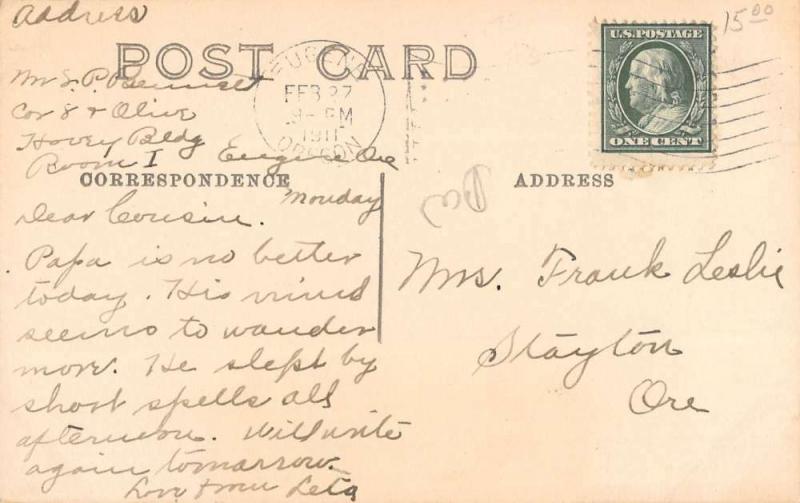 Address
15.00
U.S. POSTAGE
ONE CENT
POST CARD
EUGENE
FEB 27
PM
1911
OREGON
Mr S. P.
Cor 8 & Olive
Hovey Bldg
Room I Eugene Ore
CORRESPONDENCE
ADDRESS
Monday
Dear Cousin.
Papa is no better
today. His mind
seems to wander
more. He slept by
short spells all
afternoon. Will write
again tomorrow.
Love from Leta
Mrs. Frank Leslie
Stayton
Ore